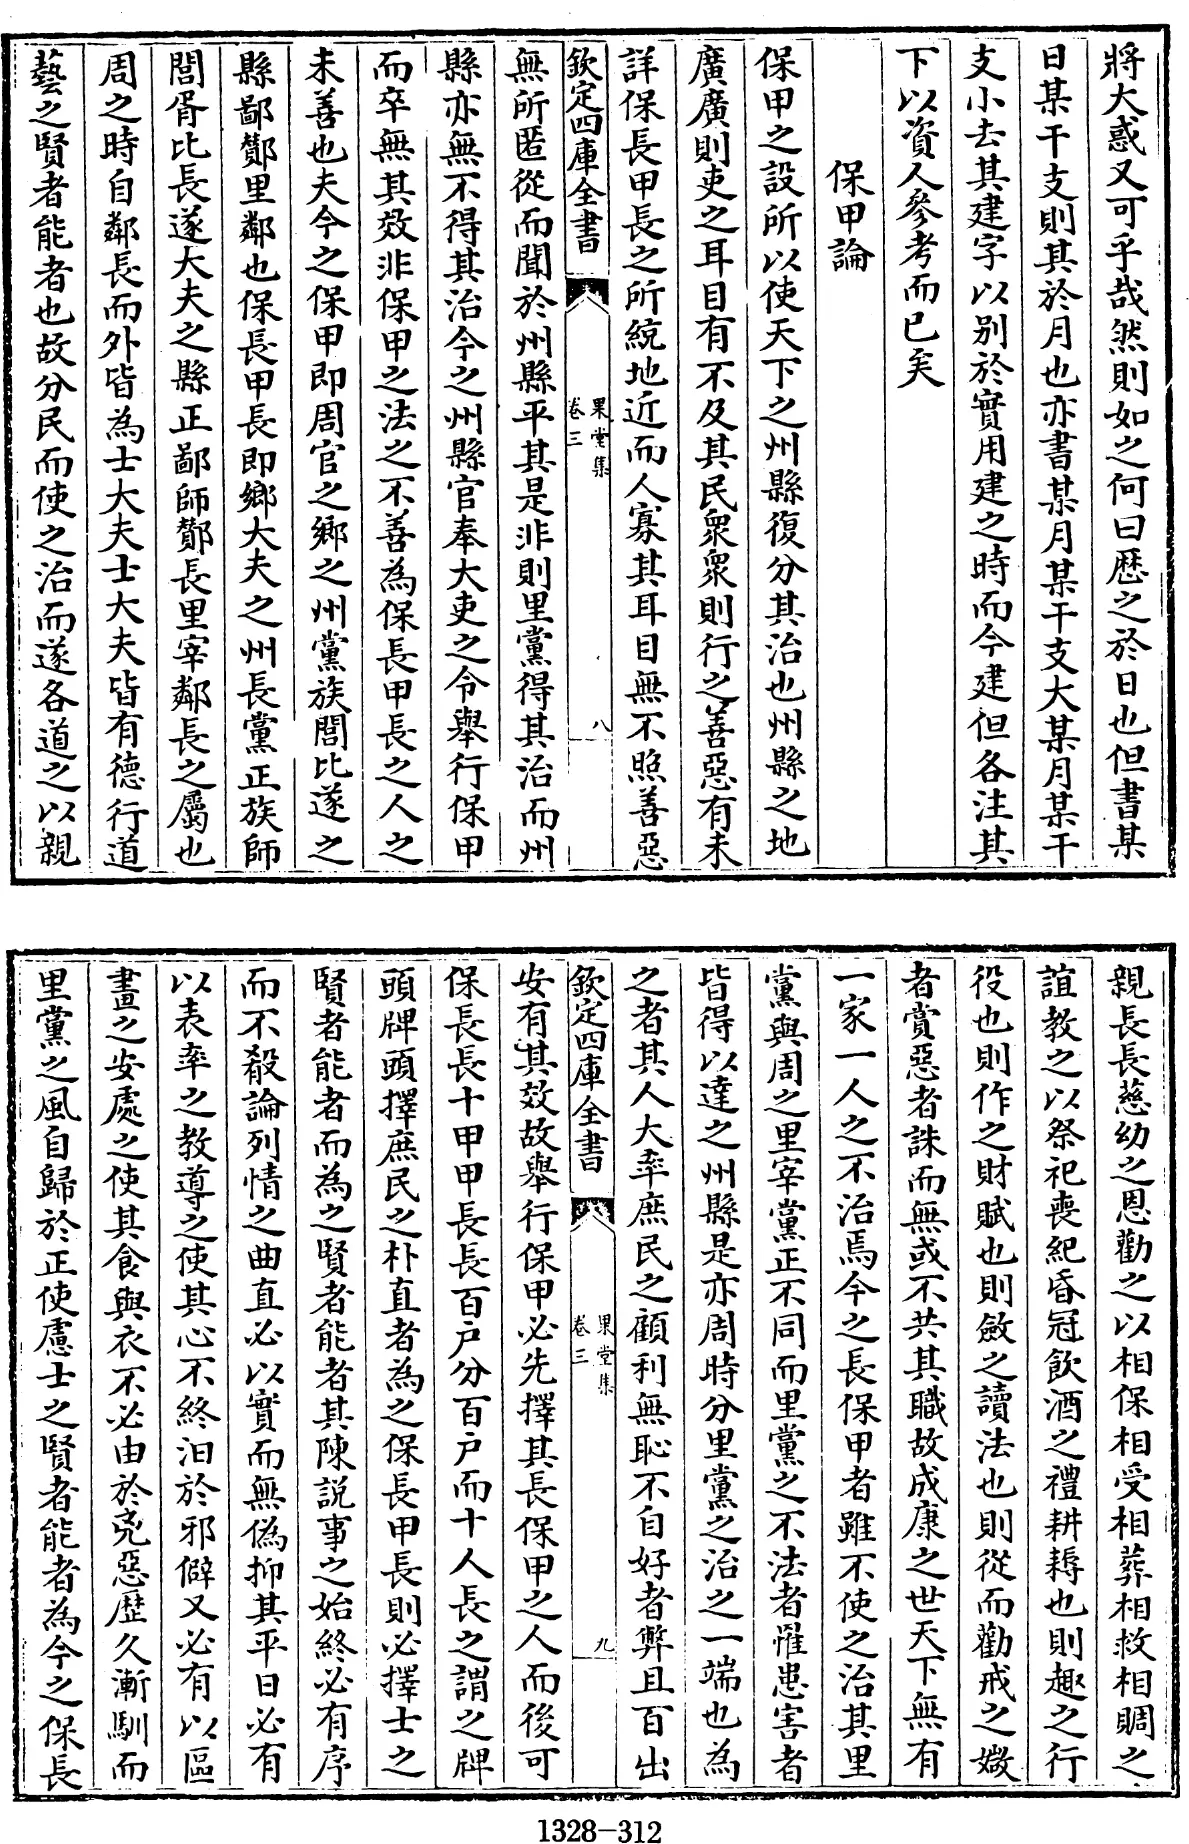 將大惑又可乎哉然則如之何曰歷之於日也但書某
日某干支則其於月也亦書某月某干支大某月某干
支小去其建字以別於實用建之時而今建但各注其
下以資人參考而已矣
保甲論
保甲之設所以使天下之州縣復分其治也州縣之地
廣廣則吏之耳目有不及其民衆衆則行之善惡有未
詳保長甲長之所統地近而人寡其耳目無不照善惡
欽定四庫全書
果堂集
卷三
八
無所匿從而聞於州縣平其是非則里黨得其治而州
縣亦無不得其治今之州縣官奉大吏之令舉行保甲
而卒無其效非保甲之法之不善為保長甲長之人之
未善也夫今之保甲即周官之鄉之州黨族閭比遂之
縣鄙酇里鄰也保長甲長即鄉大夫之州長黨正族師
閭胥比長遂大夫之縣正鄙師酇長里宰鄰長之屬也
周之時自鄰長而外皆為士大夫士大夫皆有德行道
藝之賢者能者也故分民而使之治而遂各道之以親
親長長慈幼之恩勸之以相保相受相葬相救相賙之
誼教之以祭祀喪紀昏冠飲酒之禮耕耨也則趣之行
役也則作之財賦也則斂之讀法也則從而勸戒之媺
者賞惡者誅而無或不共其職故成康之世天下無有
一家一人之不治焉今之長保甲者雖不使之治其里
黨與周之里宰黨正不同而里黨之不法者惟患害者
皆得以達之州縣是亦周時分里黨之治之一端也為
之者其人大率庶民之顧利無恥不自好者弊且百出
欽定四庫全書
果堂集
卷三
九
安有其效故舉行保甲必先擇其長保甲之人而後可
保長長十甲甲長長百户分百户而十人長之謂之牌
頭牌頭擇庶民之朴直者為之保長甲長則必擇士之
賢者能者而為之賢者能者其陳説事之始終必有序
而不殽論列情之曲直必以實而無偽抑其平日必有
以表率之教導之使其心不終汩於邪僻又必有以區
畫之安處之使其食與衣不必由於兇惡歷久漸馴而
里黨之風自歸於正使慮士之賢者能者為今之保長
1328-312